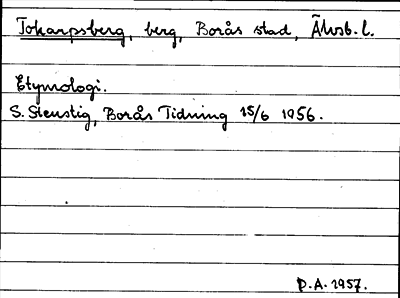 Tokarpsberg, berg, Borås stad, Älvsb. l.
Etymologi.
S. Stenstig, Borås Tidning 15/6 1956.
D.A. 1957.